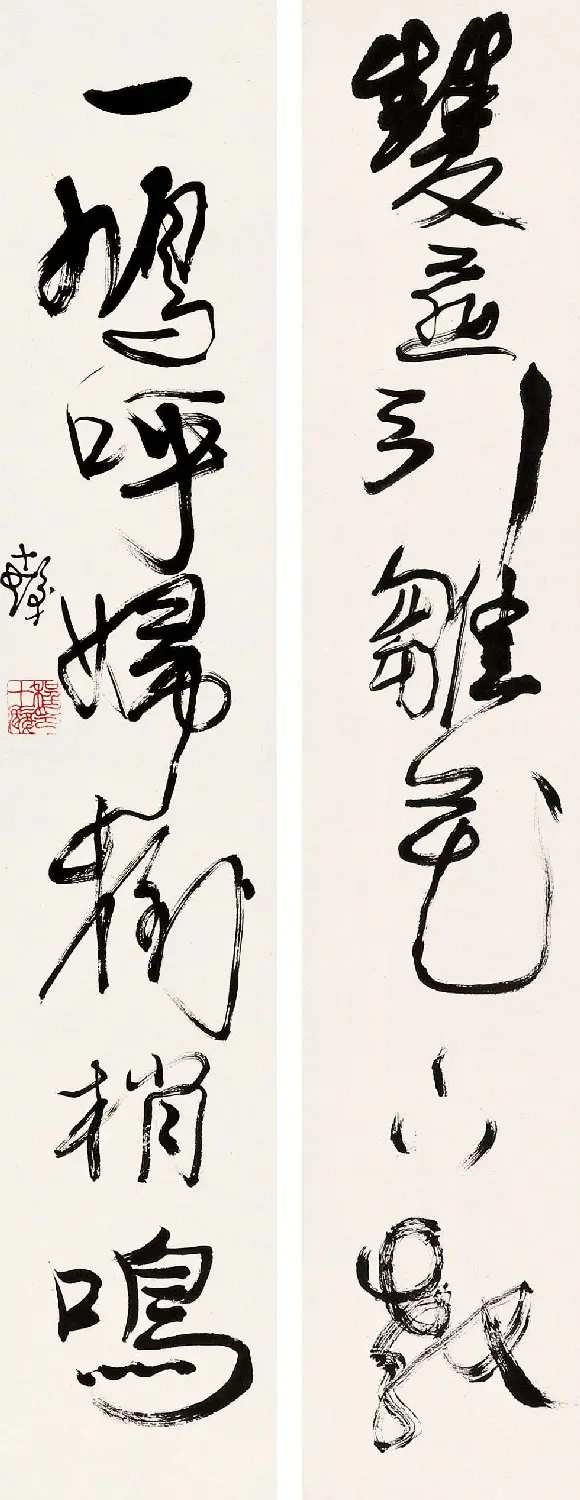 雙燕引雛花下教
一鳩呼婦樹梢鳴
十髮